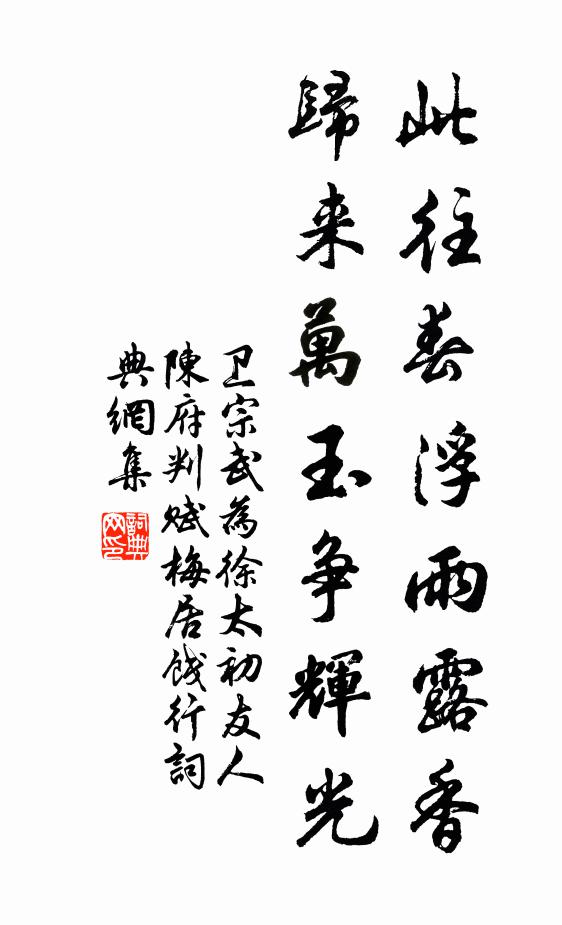 此往春浮雨露香
歸来萬玉争輝光
卫宗武為徐太初友人
陳府判赋梅居餞行詞
典網集
詞典
网印